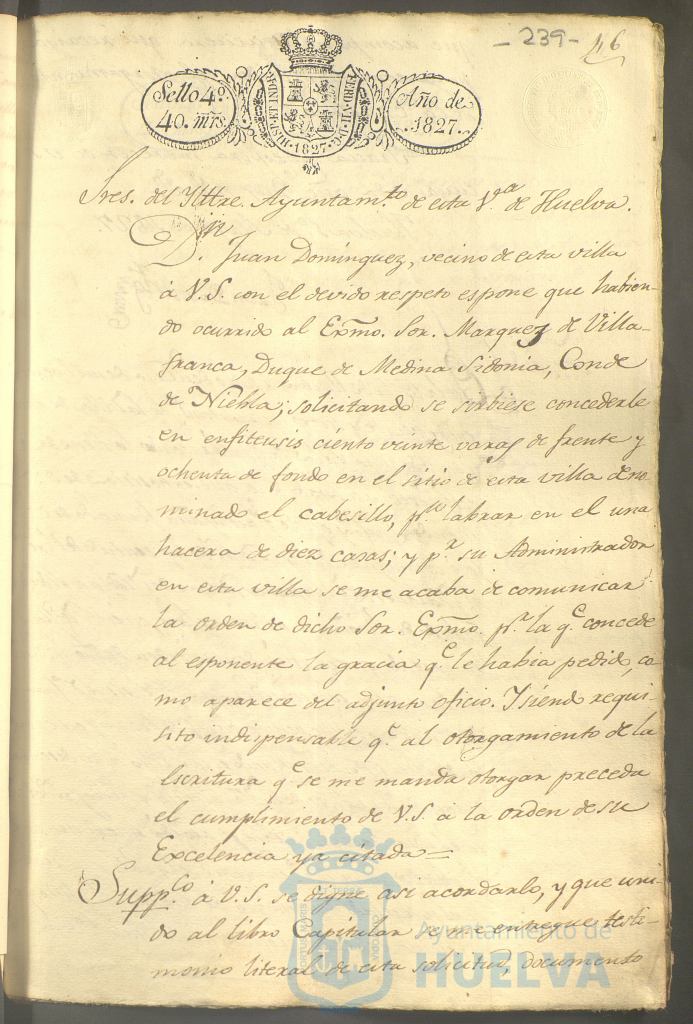 - 239 - 46
Sello 4º.
40. mrs.
HISP. ET IND. R.
FERD. VII. D. G.
1827.
Año de
1827.
Sres. del Ylltre. Ayuntam.to de esta V.a de Huelva.
D.n Juan Domínguez, vecino de esta villa
à V.S. con el devido respeto espone que habien-
do ocurrido al Exmo. Sor. Marquez de Villa-
franca, Duque de Medina Sidonia, Conde
de Niebla; solicitando se sirbiese concederle
en enfiteusis ciento veinte varas de frente y
ochenta de fondo en el sitio de esta villa deno
minado el cabesillo, p.a labrar en el una
hacera de diez casas; y p.r su Administrador
en esta villa se me acaba de comunicar
la orden de dicho Sor. Exmo. p.r la q.e concede
al esponente la gracia q.e le habia pedido, co
mo aparece del adjunto oficio. Y siendo requi-
sito indispensable q.e al otorgamiento de la
Escritura q.e se me manda otorgar preceda
el cumplimiento de V.S. à la orden de su
Excelencia ya citada =
Supp.co à V.S. se digne asi acordarlo, y que uni-
do al libro Capitular se me entregue testi-
monio literal de esta solicitud, documento
Ayuntamiento de
HUELVA